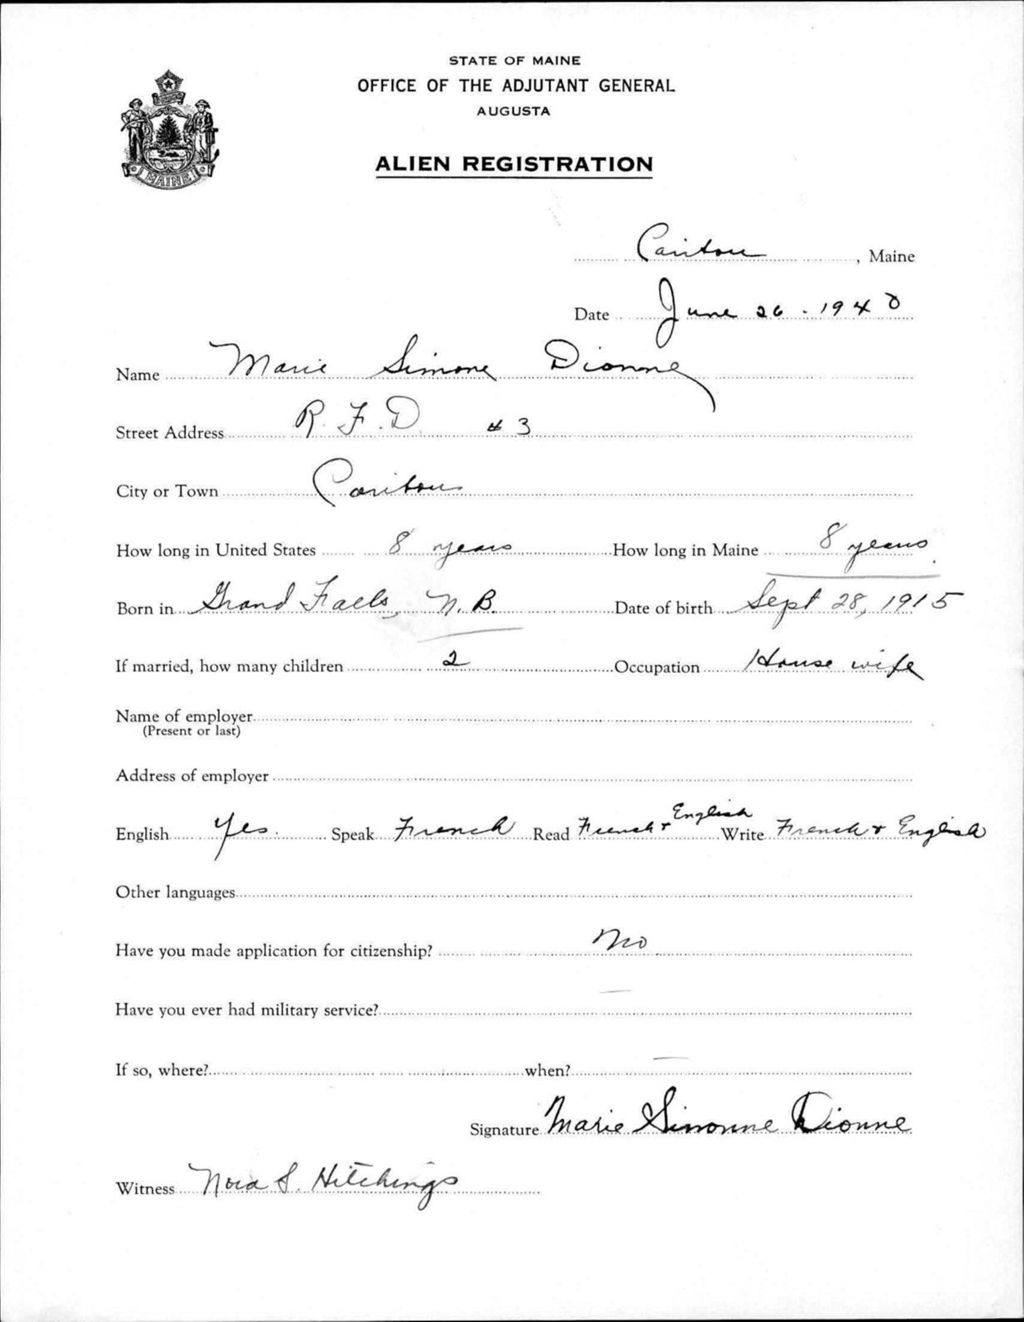 STATE OF MAINE
OFFICE OF THE ADJUTANT GENERAL
AUGUSTA
MAINE
ALIEN REGISTRATION
Caribou, Maine
Date June 26 - 1940
Name Marie Simone Dionne
Street Address R. F. D. # 3
City or Town Caribou
How long in United States 8 years How long in Maine 8 years.
Born in Grand Falls, N. B. Date of birth Sept 28, 1915
If married, how many children 2 Occupation House wife
Name of employer
(Present or last)
Address of employer
English Yes. Speak French Read French + English Write French + English
Other languages
Have you made application for citizenship? No
Have you ever had military service? —
If so, where? when? —
Signature Marie Simonne Dionne
Witness Nora S. Hitchings